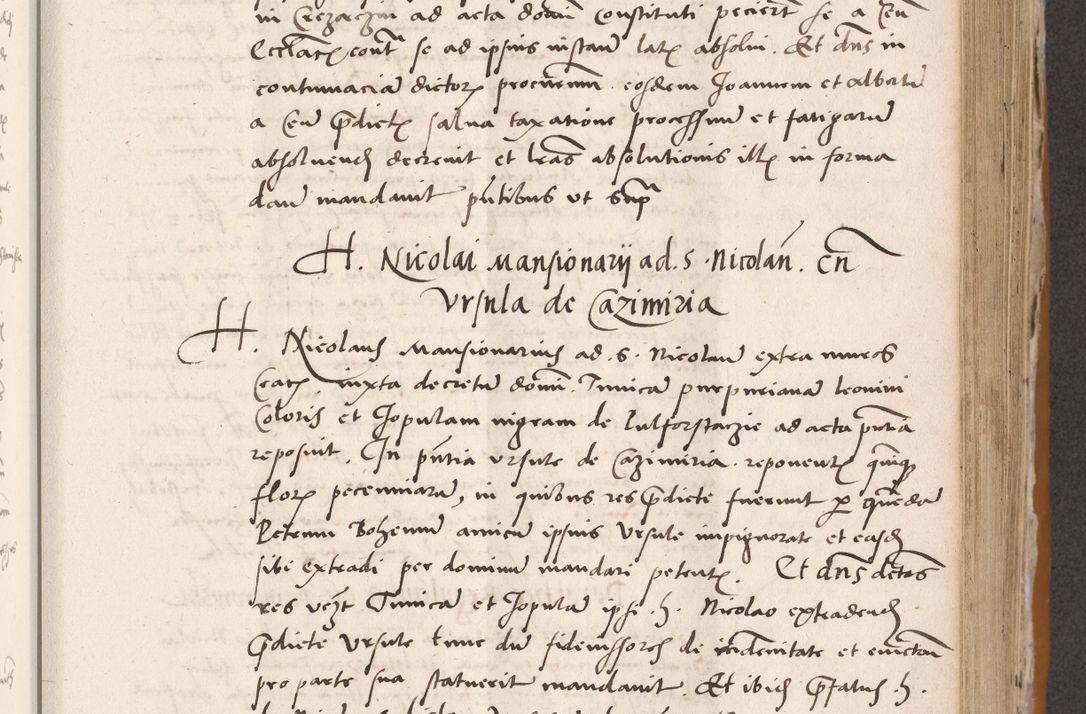 in Crczaczin ad acta domini constituti pecierunt se a Cen
Ecclastcis cont se ad ipsius instam latis absolvi. Et dns in
contumaciam dictorum procurem eosdem Joannem et Albertum
a Cen pdictis salva taxatione processuum et fatigarum
absolvend decrevit et lras absolutionis illis in forma
dari mandavit pntibus ut sup
H. Nicolai Mansionarij ad S. Nicolau. Cn
Ursula de Cazimiria
H. Nicolaus Mansionarius ad S. Nicolaum extra muros
Crac iuxta decretum domini Tunicam purpurianam leonini
Coloris et Jopulam nigram de lulforstazie ad acta pntia
reposuit. In pntia Ursule de Cazimiria reponentis quinque
flor pecuniarum, in quibus res pdicte fuerunt per quendam
Petrum Bohemum amicum ipsius Ursule impignorate et easd
sibi extradi per dominum mandari petentis. Et dns dictas
res vczt Tunicam et Jopulam ipsi h. Nicolao extradend
pdicte Ursule tunc dum fideiussores de indemnitate et evictione
pro parte sua statuerit mandavit. Et ibid pfatus h.